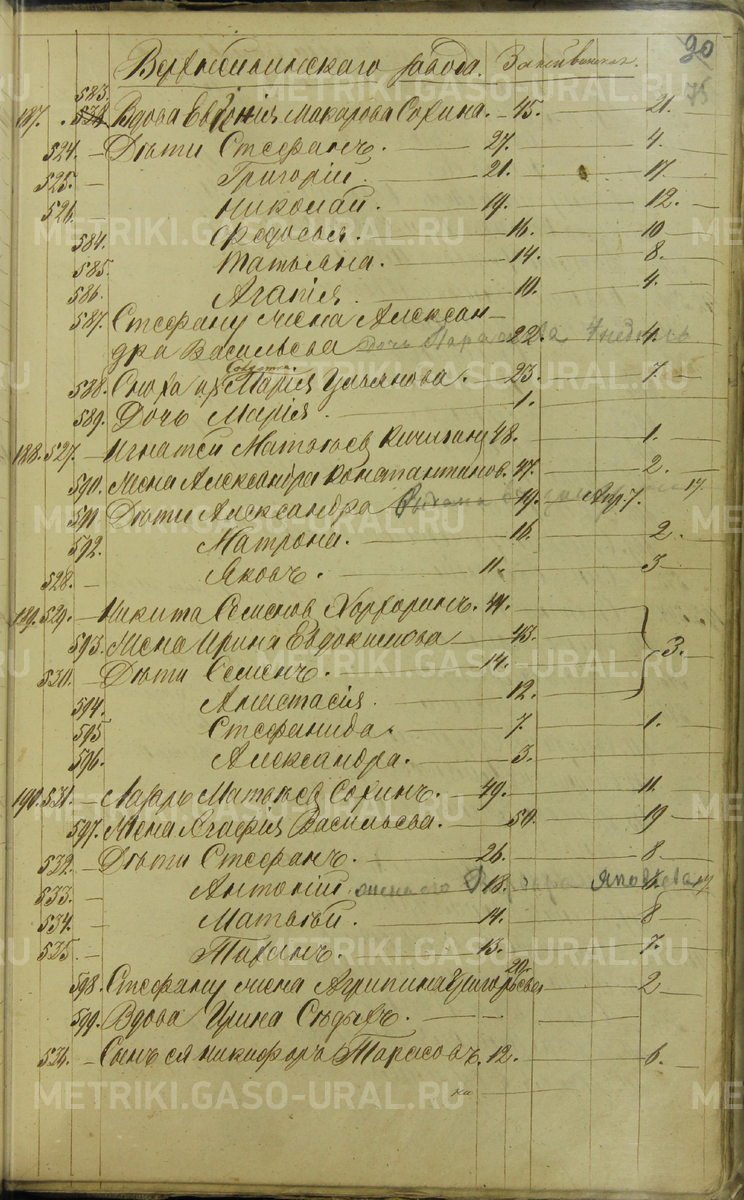 90
75
Верхнесинячихинскаго завода.
583.
187. 538 Вдова Евгенія Макарова Сохина. 45. 21.
524. Дѣти Стефанъ. 27. 4.
525. Григорій. 21. 17.
526. Николай. 19. 12.
584. Федосья. 16. 10
585. Татьяна. 14. 8.
586. Агапія. 10. 4.
587. Стефану жена Алексан-
дра Васильева дочь 22. 4.
588. Сноха ея Марія Ульянова. 23. 7.
589. Дочь Марія. 1.
188. 527. Игнатей Матвѣев 48. 1.
590. Жена Александра Константинов. 47. 2.
591 Дѣти Александра 19. Апр. 7. 17
592. Матрона. 16. 2.
528. Яковъ. 11. 3
189. 529. Никита Семенов 44.
593. Жена Ирина Евдокимова 43. 3.
530. Дѣти Семенъ. 14.
594. Анастасія. 12.
595 Стефанида. 7. 1.
596. Александра. 3.
190. 531. Лазарь Матвѣев Сохинъ. 49. 11.
597. Жена Агафія Васильева. 50. 19
532. Дѣти Стефанъ. 26. 8
533. Антоній жена его 18. Яковлева 17
534. Матвѣй. 14. 8
535. Тарахъ. 13. 7.
598. Стефану жена Агрипина Григорьева 20. 2
599. Вдова Ирина Сѣдыхъ.
536. Сынъ ея Никифоръ Тарасовъ. 12. 6.
METRIKI.GASO-URAL.RU